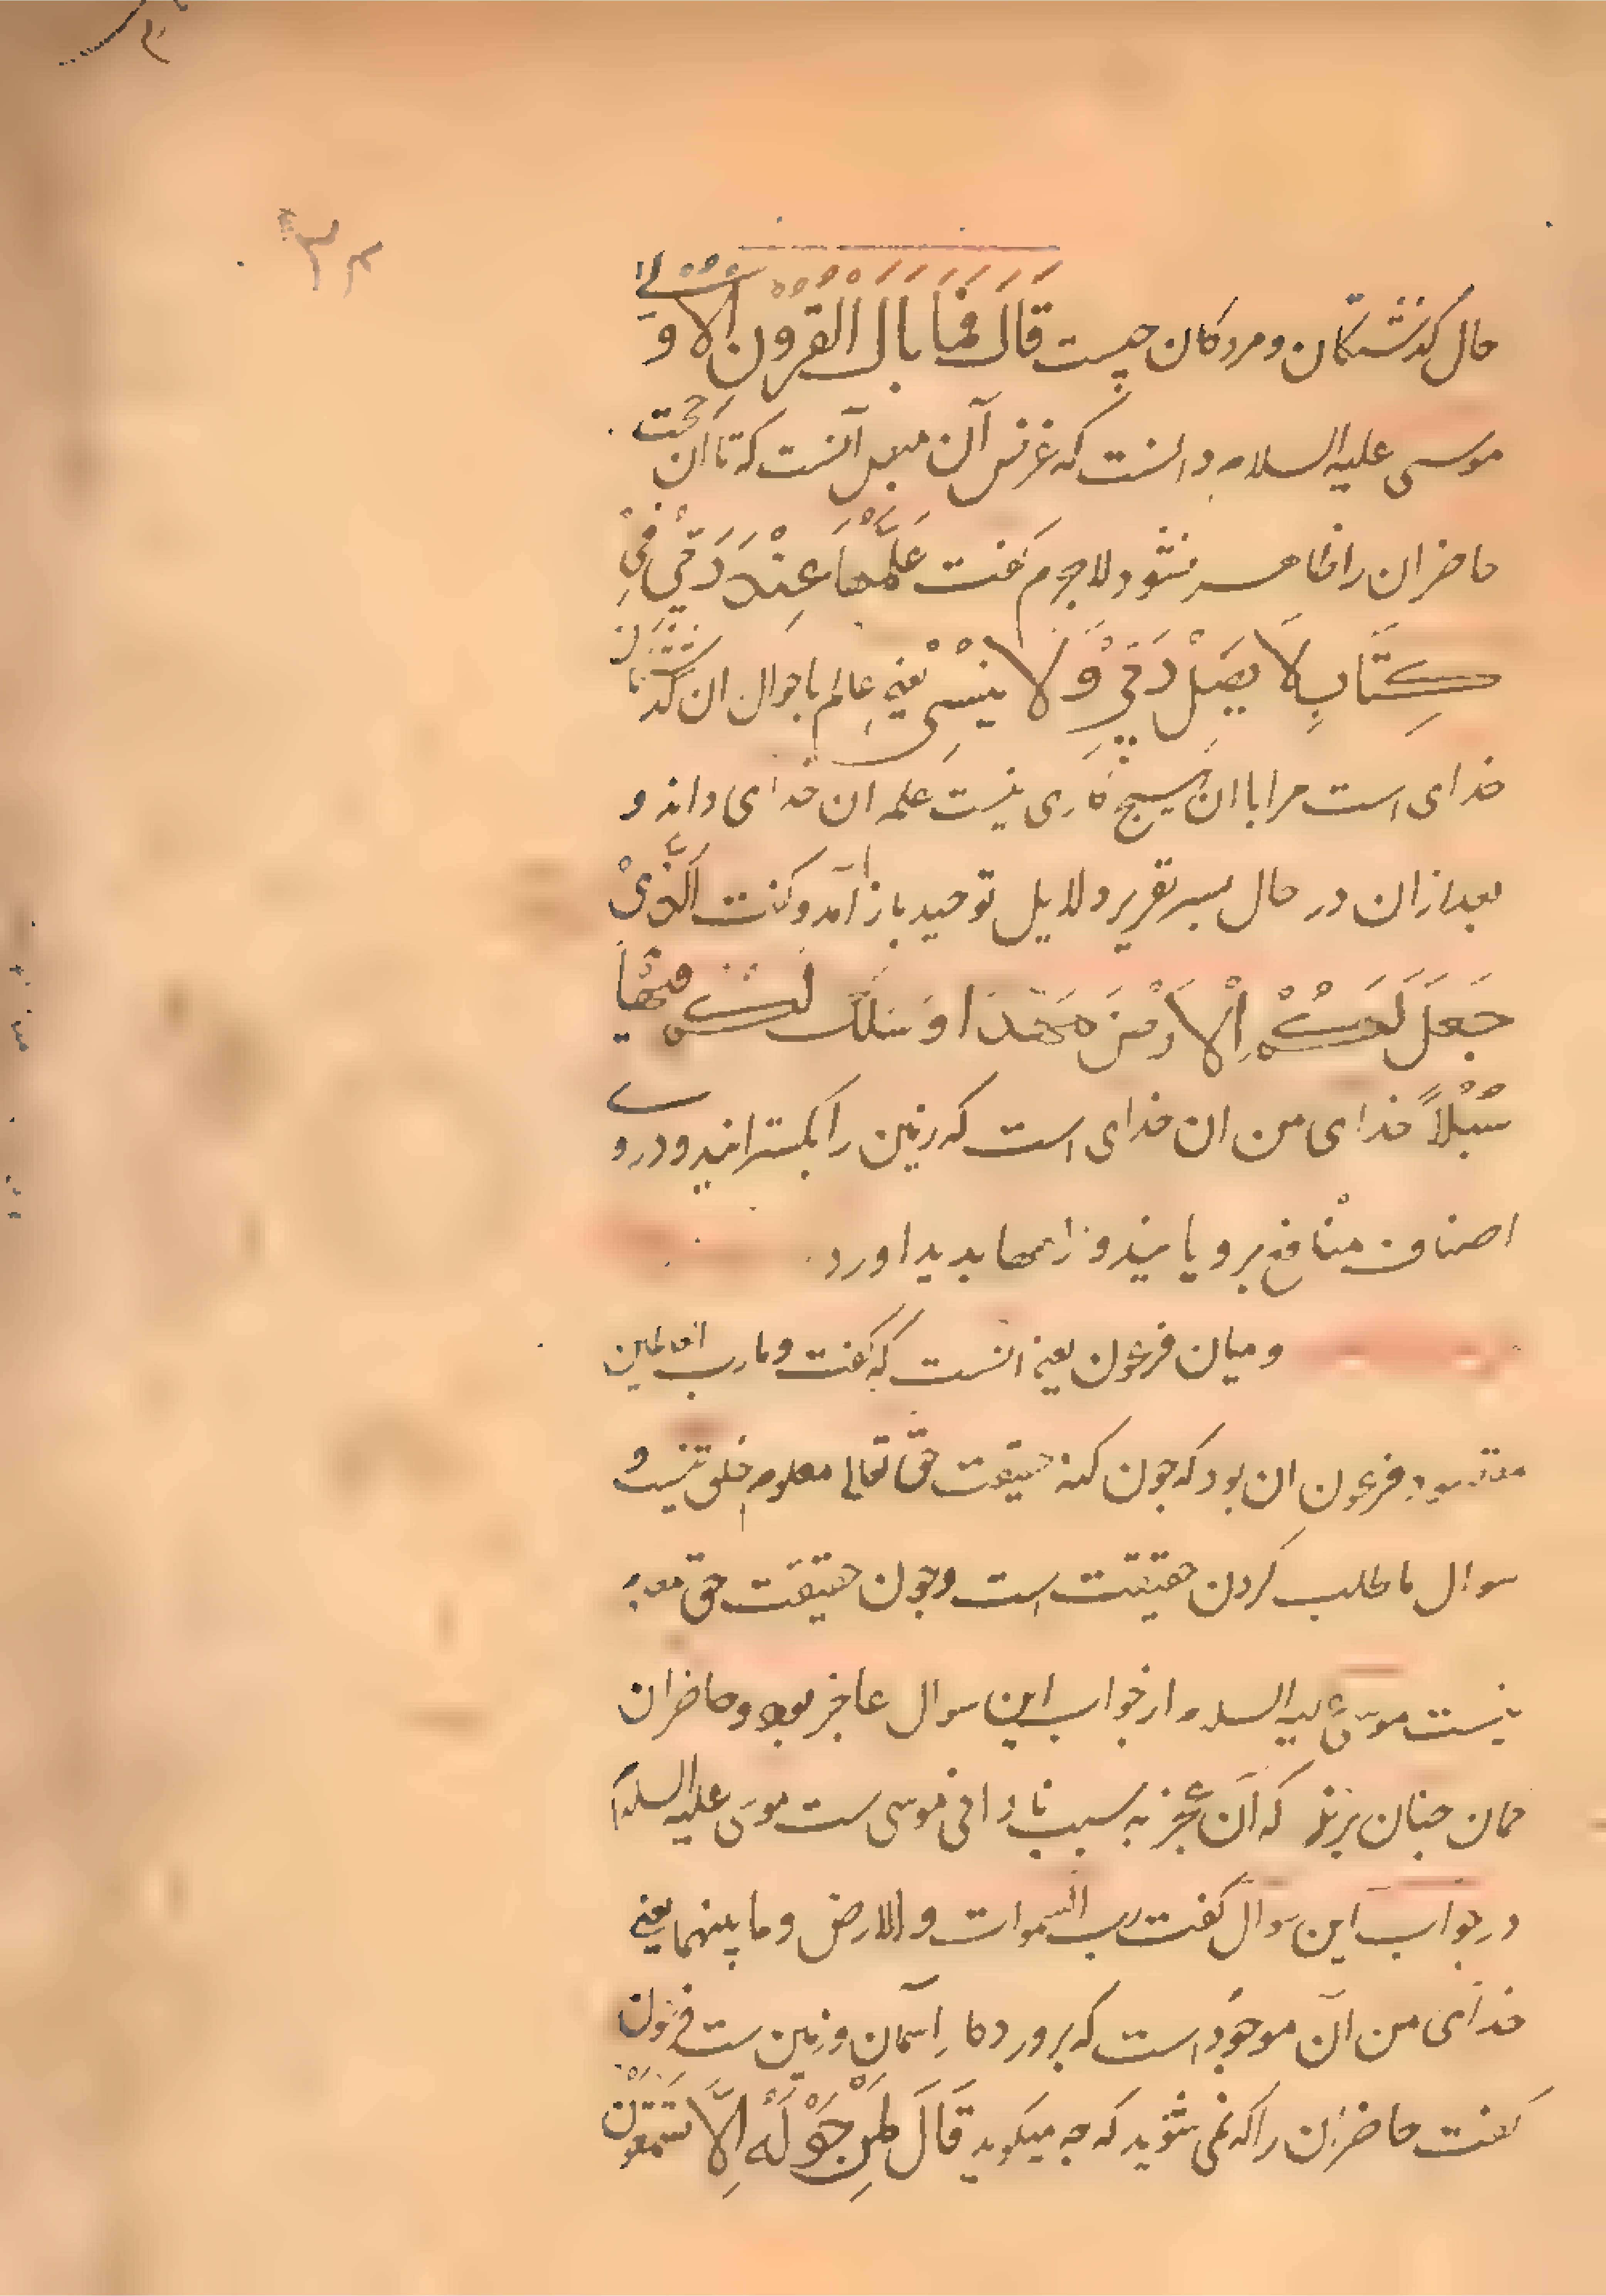 ۳۴
حال کذشتکان و مردکان چیست قَالَ فَمَا بَالُ الْقُرُوْنِ الْاُوْلٰی
موسی علیه السلام دانست که غرض آن معل آنست که تا ان حجت
حاضران را ظاهر نشود لاجرم کفت عِلْمُهَا عِنْدَ رَبِّیْ فِیْ
کِتَابٍ لَا یَضِلُّ رَبِّیْ وَلَا یَنْسٰی یعنی عالم باحوال ان کذشتکان
خدای است مرا با ان هیچ کاری نیست علم ان خدای داند و
بعد از ان در حال بسر تقریر دلایل توحید باز آمد و کفت اَلَّذِیْ
جَعَلَ لَکُمُ الْاَرْضَ مَهْدًا وَسَلَکَ لَکُمْ فِیْهَا
سُبُلًا خدای من ان خدای است که زمین را بکسترانید و در وی
اصناف منافع برویانید و راهها بدید اورد
و میان فرعون یعنی انست که کفت وما رب العالمین
مقصود فرعون ان بود که چون کنه حقیقت حق تعالی معلوم خلق نیست و
سوال ما طلب کردن حقیقت است و چون حقیقت حق
نیست موسی علیه السلام از جواب این سوال عاجز بود و حاضران
کمان چنان برند که آن عجز به سبب نادانی موسی ست موسی علیه السلام
در جواب این سوال کفت رب السموات والارض وما بینهما یعنی
خدای من آن موجود است که پروردکار آسمان و زمین ست فرعون
کفت حاضران را که نمی شنوید که چه میکوید قَالَ لِمَنْ حَوْلَهُ اَلَا تَسْتَمِعُوْنَ